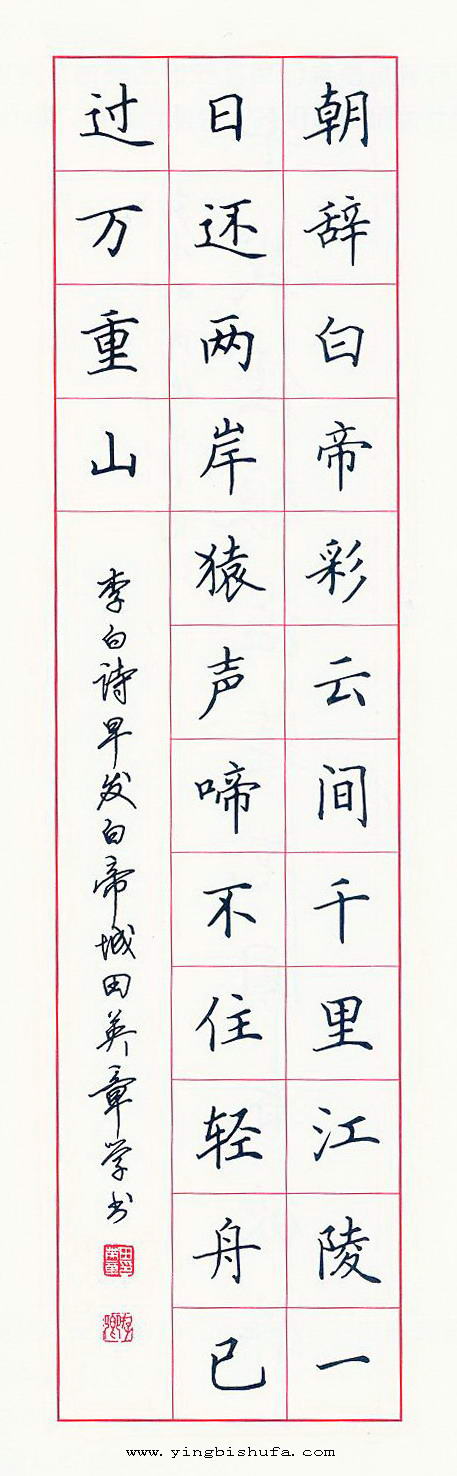 朝辞白帝彩云间千里江陵一
日还两岸猿声啼不住轻舟已
过万重山
李白诗早发白帝城田英章学书
www.yingbishufa.com